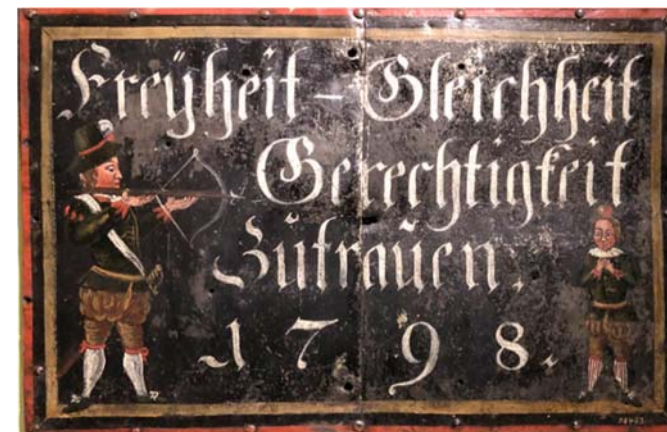 Freÿheit - Gleichheit
Gerechtigkeit
Zŭtraŭen.
1798.